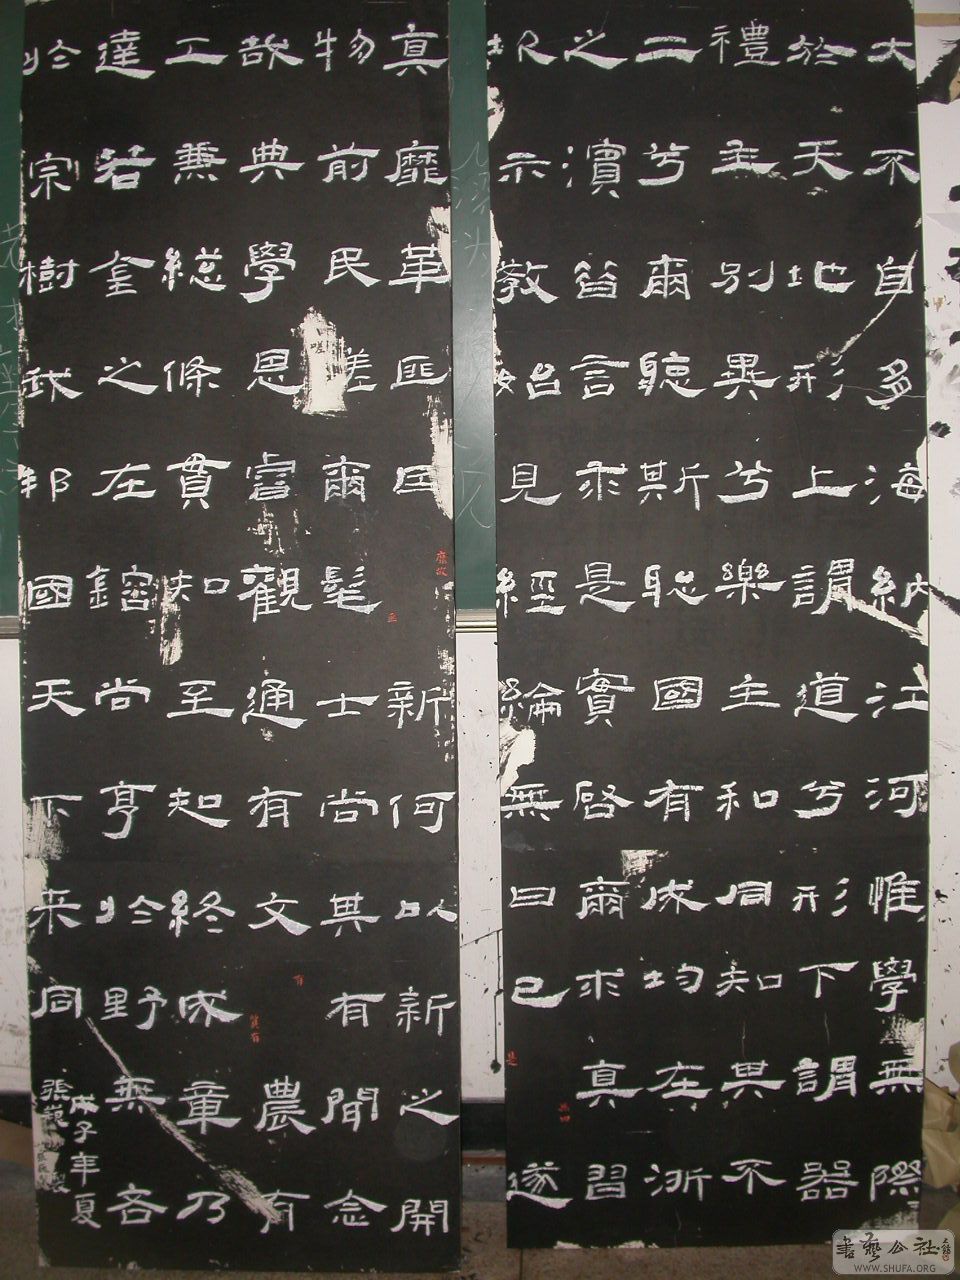 大不自多海納江河惟學無際
於天地形上謂道兮形下謂器
禮主別異兮樂主和同知其不
二兮爾聽斯聰國有成均在浙
之濱昔言求是實啓爾求真習
無曰
坎示教始見經綸無曰已遂
是
真靡革匪新何以新之開
靡故
物前民嗟爾髦士尚其有聞念
哉典學思睿觀通有文農有
有
質有
工兼總條貫知至知終成章乃
達若金之在鎔尚亨於野無吝
於宗樹我邦國天下來同
戊子年夏
張
書藝公社
WWW.SHUFA.ORG